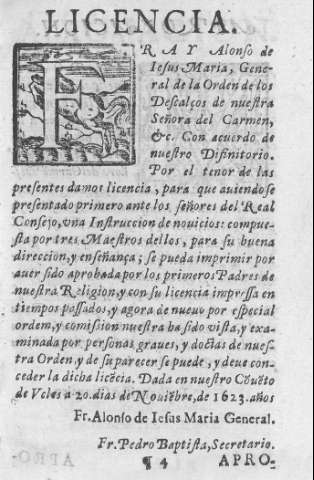 LICENCIA.
FRAY Alonso de
Iesus Maria, Gene-
ral de la Orden de los
Descalços de nuestra
Señora del Carmen,
&c. Con acuerdo de
nuestro Difinitorio.
Por el tenor de las
presentes damos licencia, para que auiendose
presentado primero ante los señores del Real
Consejo, vna Instruccion de nouicios: compue-
sta por tres Maestros dellos, para su buena
direccion, y enseñança; se pueda imprimir por
auer sido aprobada por los primeros Padres de
nuestra Religion, y con su licencia impressa en
tiempos passados, y agora de nueuo por especial
orden, y comission nuestra ha sido vista, y exa-
minada por personas graues, y doctas de nues-
tra Orden, y de su parecer se puede, y deue con-
ceder la dicha licēcia. Dada en nuestro Cōuēto
de Vcles a 20. dias de Nouiēbre, de 1623. años
Fr. Alonso de Iesus Maria General.
Fr. Pedro Baptista, Secretario.
¶ 4 APRO-